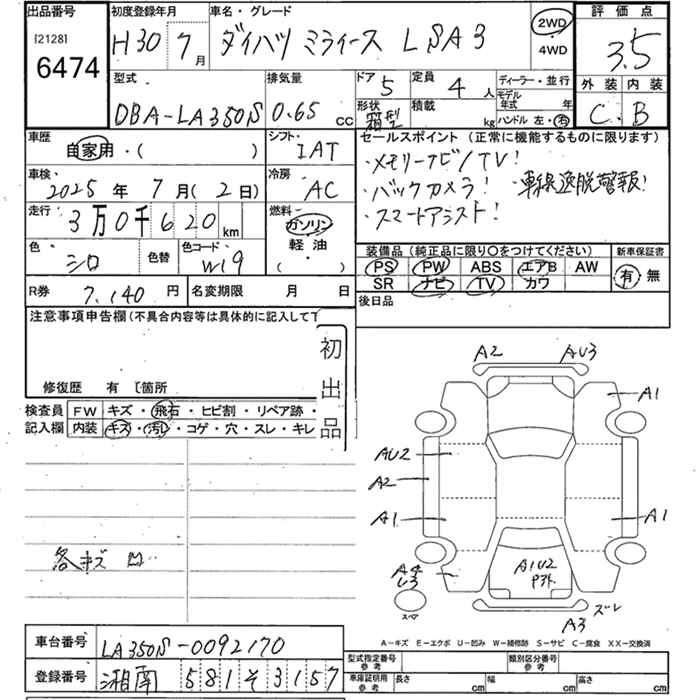 出品番号
[2128]
6474
初度登録年月
H30 7月
車名・グレード
ダイハツ ミライース L SA3
2WD
4WD
評価点
3.5
外装 内装
C B
型式
DBA-LA350S
排気量
0.65 CC
ドア 5
形状
箱型
定員 4 人
積載 kg
ディーラー・並行
モデル
年式 年
ハンドル 左・右
車歴
自家用・( )
シフト
IAT
セールスポイント(正常に機能するものに限ります)
・メモリーナビ/TV!
・バックカメラ! ・車線逸脱警報!
・スマートアシスト!
車検
2025年 7月(2日)
冷房
AC
走行
3万0千620km
燃料
ガソリン
軽油
( ・ )
色
シロ
色替
色コード
W19
装備品(純正品に限り〇をつけてください)
PS PW ABS エアB AW
SR ナビ TV カワ
新車保証書
有 無
R券 7,140円
名変期限 月 日
後日品
注意事項申告欄(不具合内容等は具体的に記入して下
修復歴 有 〔箇所
初出品
検査員
記入欄
FW キズ・飛石・ヒビ割・リペア跡・
内装 キズ・汚レ・コゲ・穴・スレ・キレ
各キズ凹
A2
AU3
A1
AU2
A2
A1
A1
A4
U3
A1U2
スペア
ズレ
A3
A-キズ E-エクボ U-凹み W-補修跡 S-サビ C-腐食 XX-交換済
車台番号 LA350S-0092170
登録番号 湘南 581 そ 3157
型式指定番号
参考
類別区分番号
参考
車庫証明用
参考
長さ cm
幅 cm
高さ cm